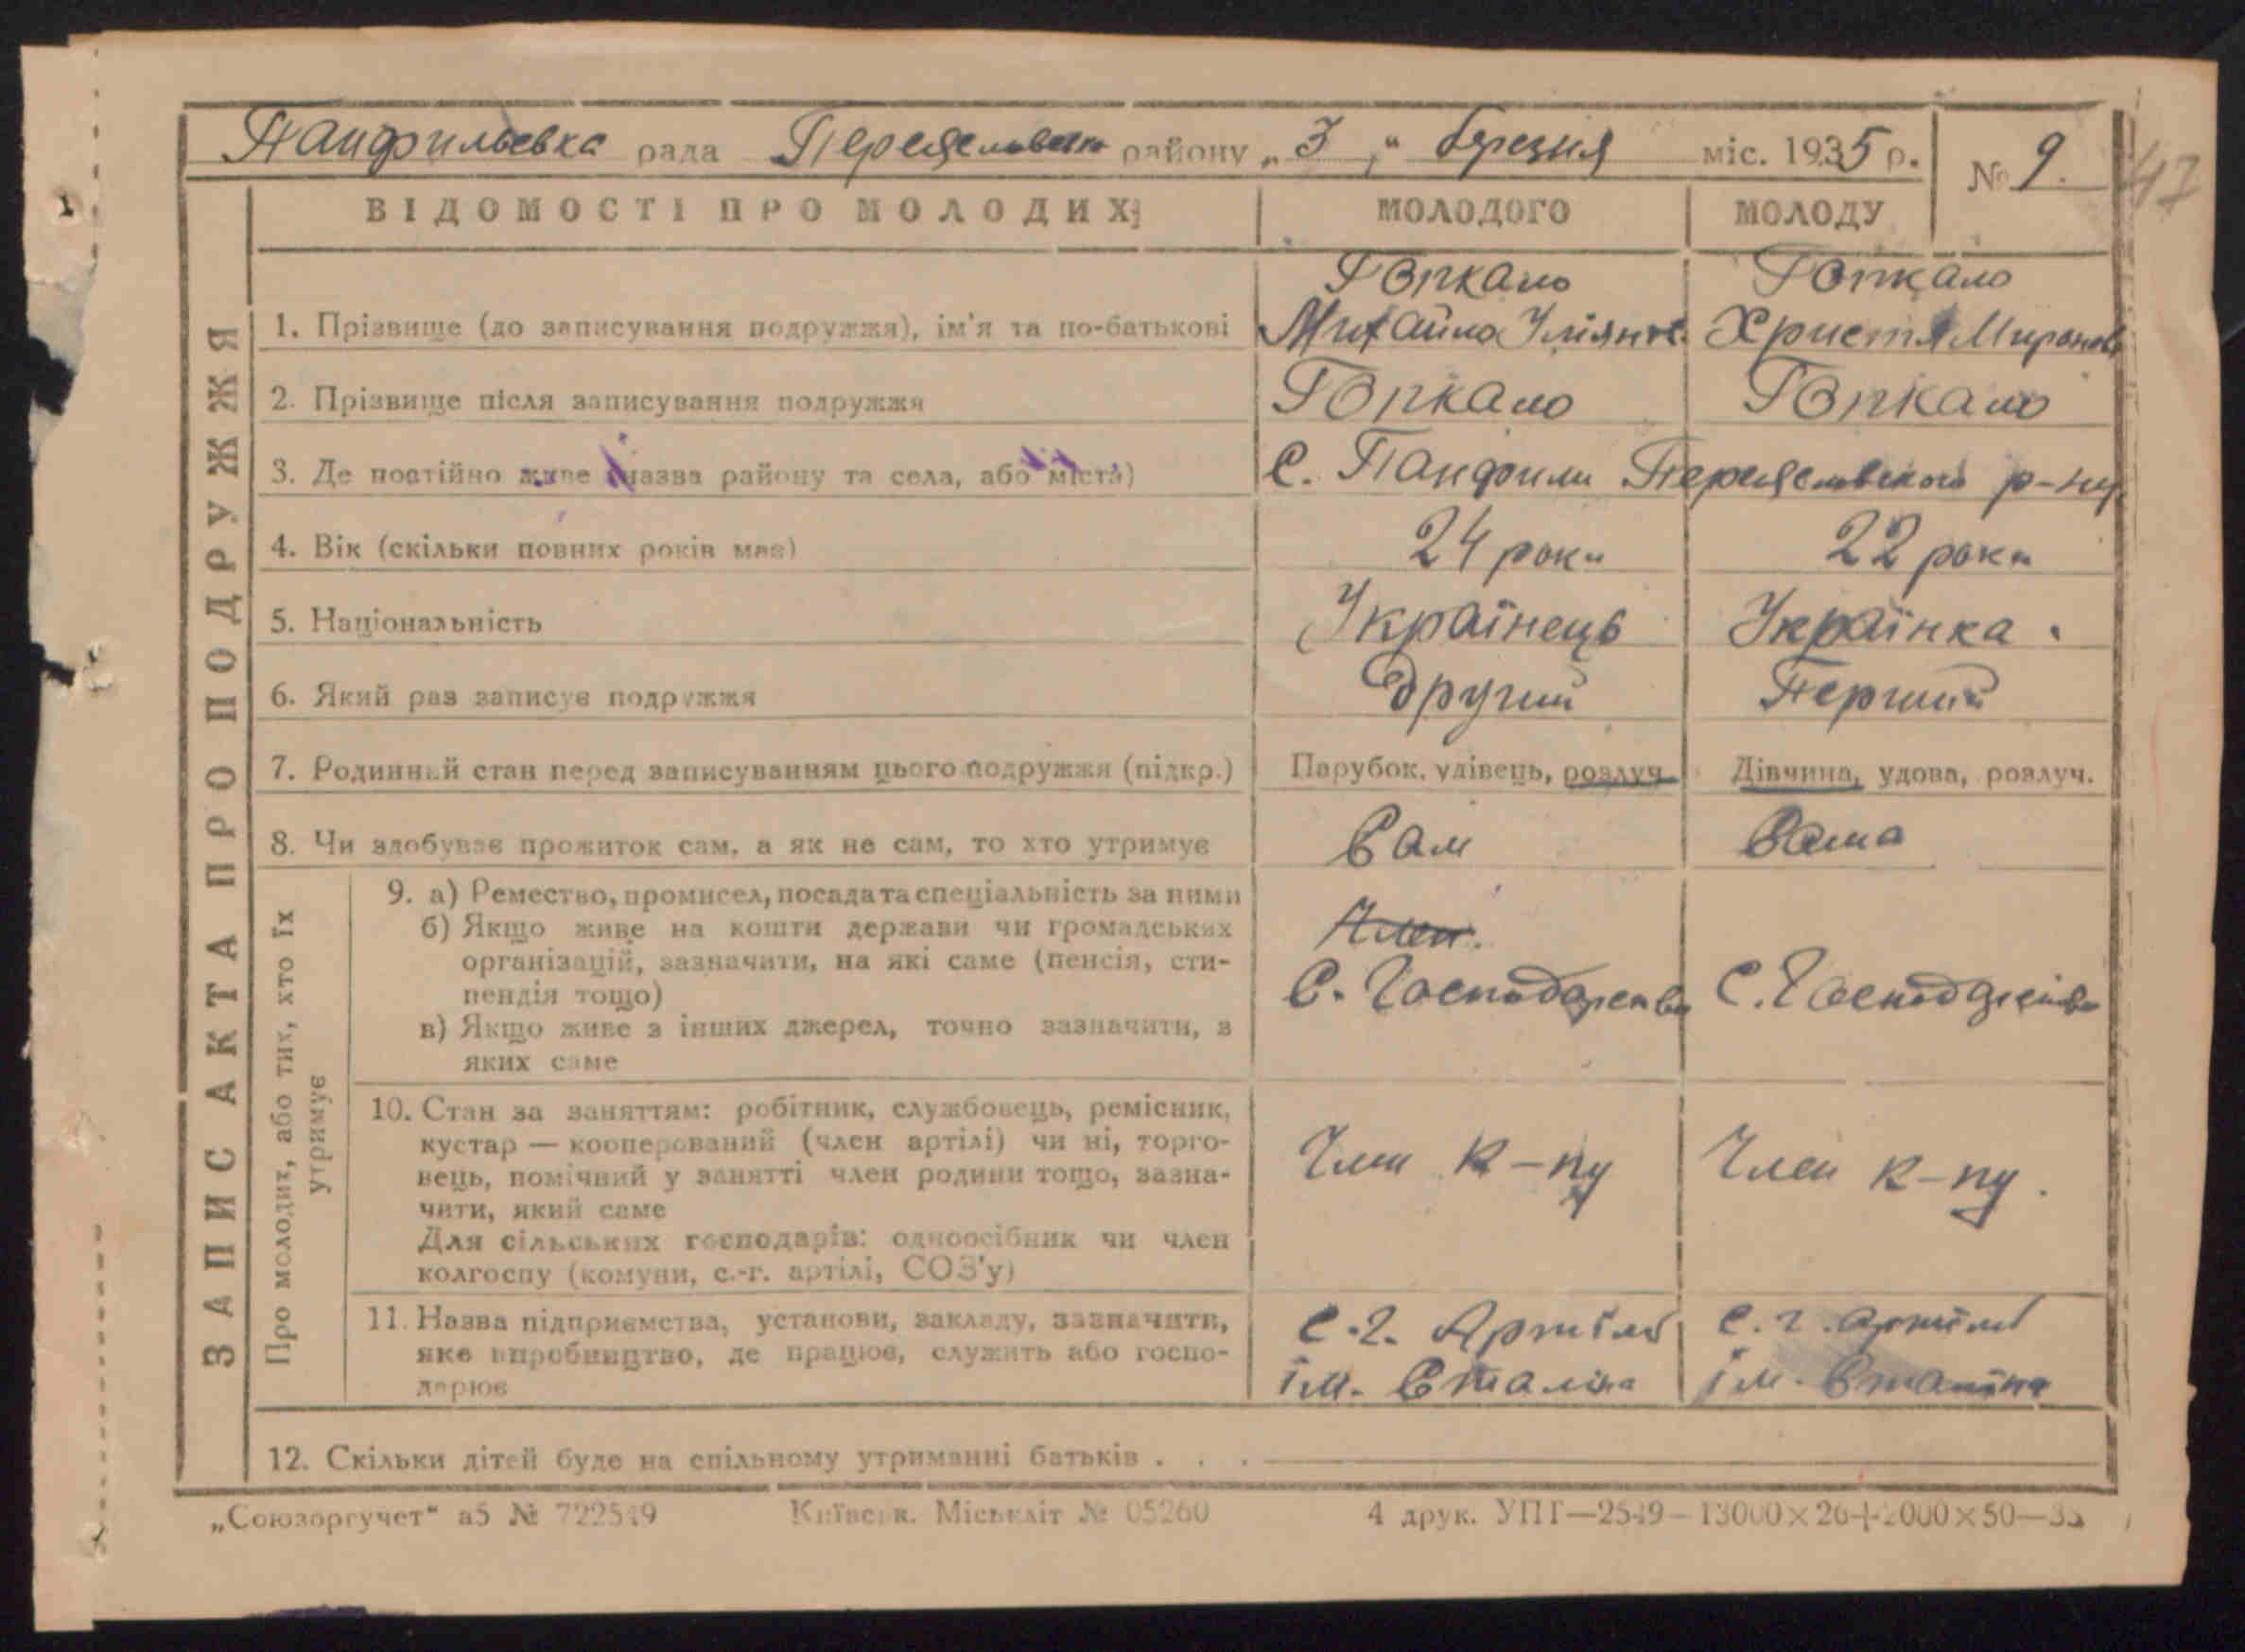 Панфильевка рада Переяславськ району „3„ березня міс. 1935 р.
№ 9.
47
ВІДОМОСТІ ПРО МОЛОДИХ:
МОЛОДОГО
МОЛОДУ
ЗАПИС АКТА ПРО ПОДРУЖЖЯ
1. Прізвище (до записування подружжя), ім'я та по-батькові
Гопкало
Михайло Улiянов.
Гопкало
Христя Миронов
2. Прізвище після записування подружжя
Гопкало
Гопкало
3. Де постійно живе (назва району та села, або міста)
С. Панфили Переяславського р-ну
4. Вік (скільки повних років має)
24 роки
22 роки
5. Національність
Українець
Українка.
6. Який раз записує подружжя
Другий
Перший
7. Родинний стан перед записуванням цього подружжя (підкр.)
Парубок, удівець, розлуч.
Дівчина, удова, розлуч.
8. Чи здобуває прожиток сам, а як не сам, то хто утримує
Сам
Сама
Про молодих, або тих, хто їх
утримує
9. а) Ремество, промисел, посада та спеціальність за ними
б) Якщо живе на кошти держави чи громадських
організацій, зазначити, на які саме (пенсія, сти-
пендія тощо)
в) Якщо живе з інших джерел, точно зазначити, в
яких саме
Член.
С. Господарство
С. Господарство
10. Стан за заняттям: робітник, службовець, ремісник,
кустар — кооперований (член артілі) чи ні, торго-
вець, помічний у занятті член родини тощо, зазна-
чити, який саме
Для сільських господарів: одноосібник чи член
колгоспу (комуни, с.-г. артілі, СОЗ'у)
Член к-пу
Член к-пу.
11. Назва підприємства, установи, закладу, зазначити,
яке виробництво, де працює, служить або госпо-
дарює
С.г. Артіль
ім. Сталіна
С.г. артіль
ім. Сталіна
12. Скільки дітей буде на спільному утриманні батьків . . .
„Союзоргучет“ а5 № 722549
Київськ. Міськліт № 05260
4 друк. УПП—2549—13000×26+2000×50—35